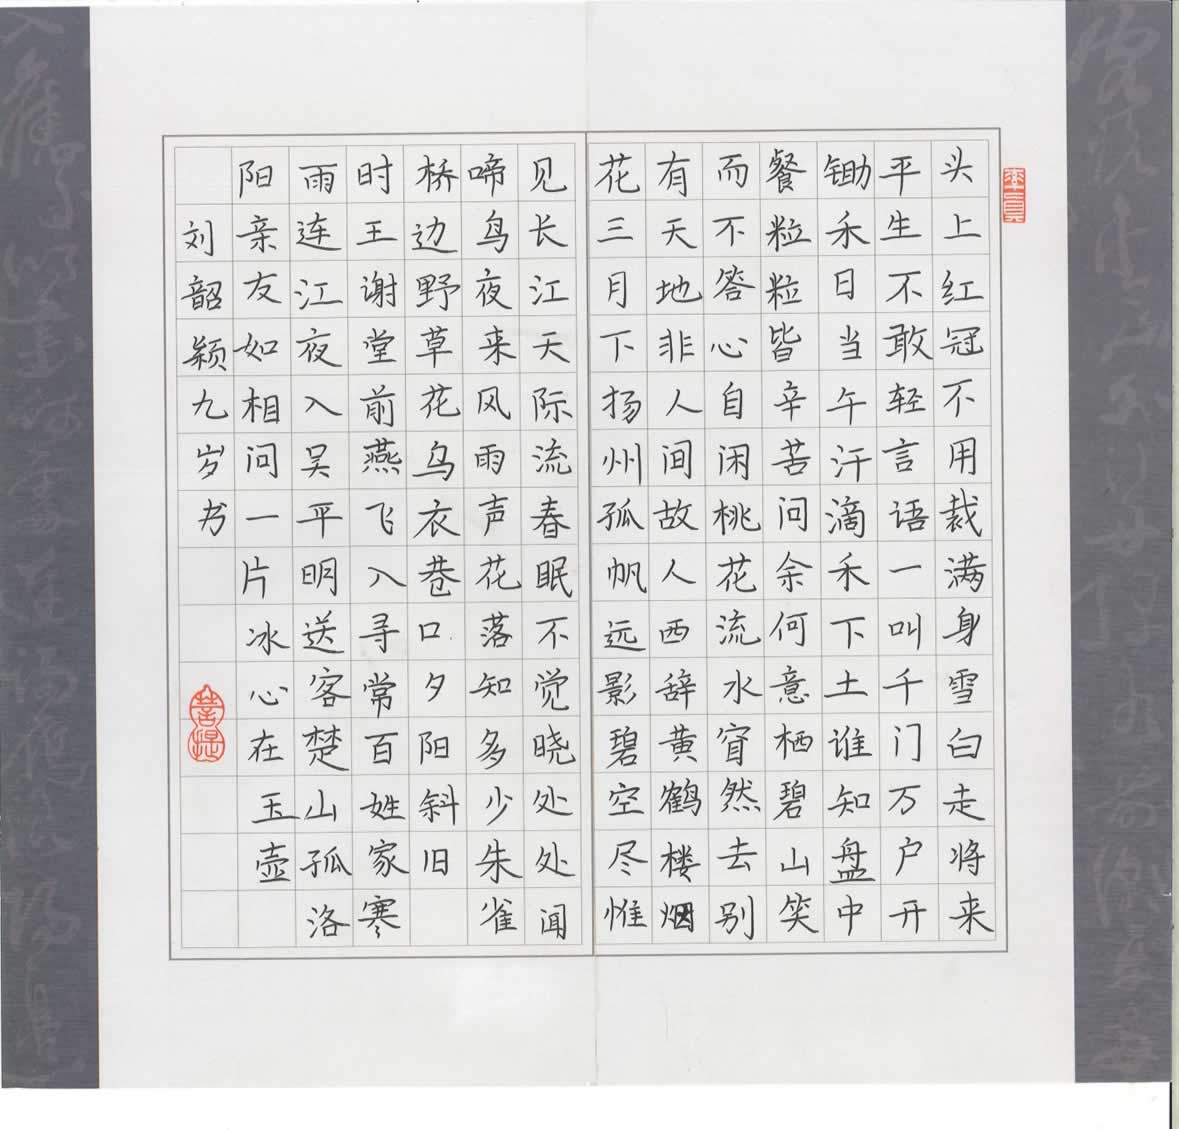 率真
头上红冠不用裁满身雪白走将来
平生不敢轻言语一叫千门万户开
锄禾日当午汗滴禾下土谁知盘中
餐粒粒皆辛苦问余何意栖碧山笑
而不答心自闲桃花流水窅然去别
有天地非人间故人西辞黄鹤楼烟
花三月下扬州孤帆远影碧空尽惟
见长江天际流春眠不觉晓处处闻
啼鸟夜来风雨声花落知多少朱雀
桥边野草花乌衣巷口夕阳斜旧
时王谢堂前燕飞入寻常百姓家寒
雨连江夜入吴平明送客楚山孤洛
阳亲友如相问一片冰心在玉壶
刘韶颖九岁书
菩提